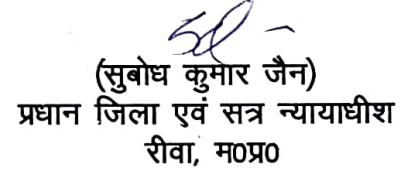 (सुबोध कुमार जैन)
प्रधान जिला एवं सत्र न्यायाधीश
रीवा, म0प्र0